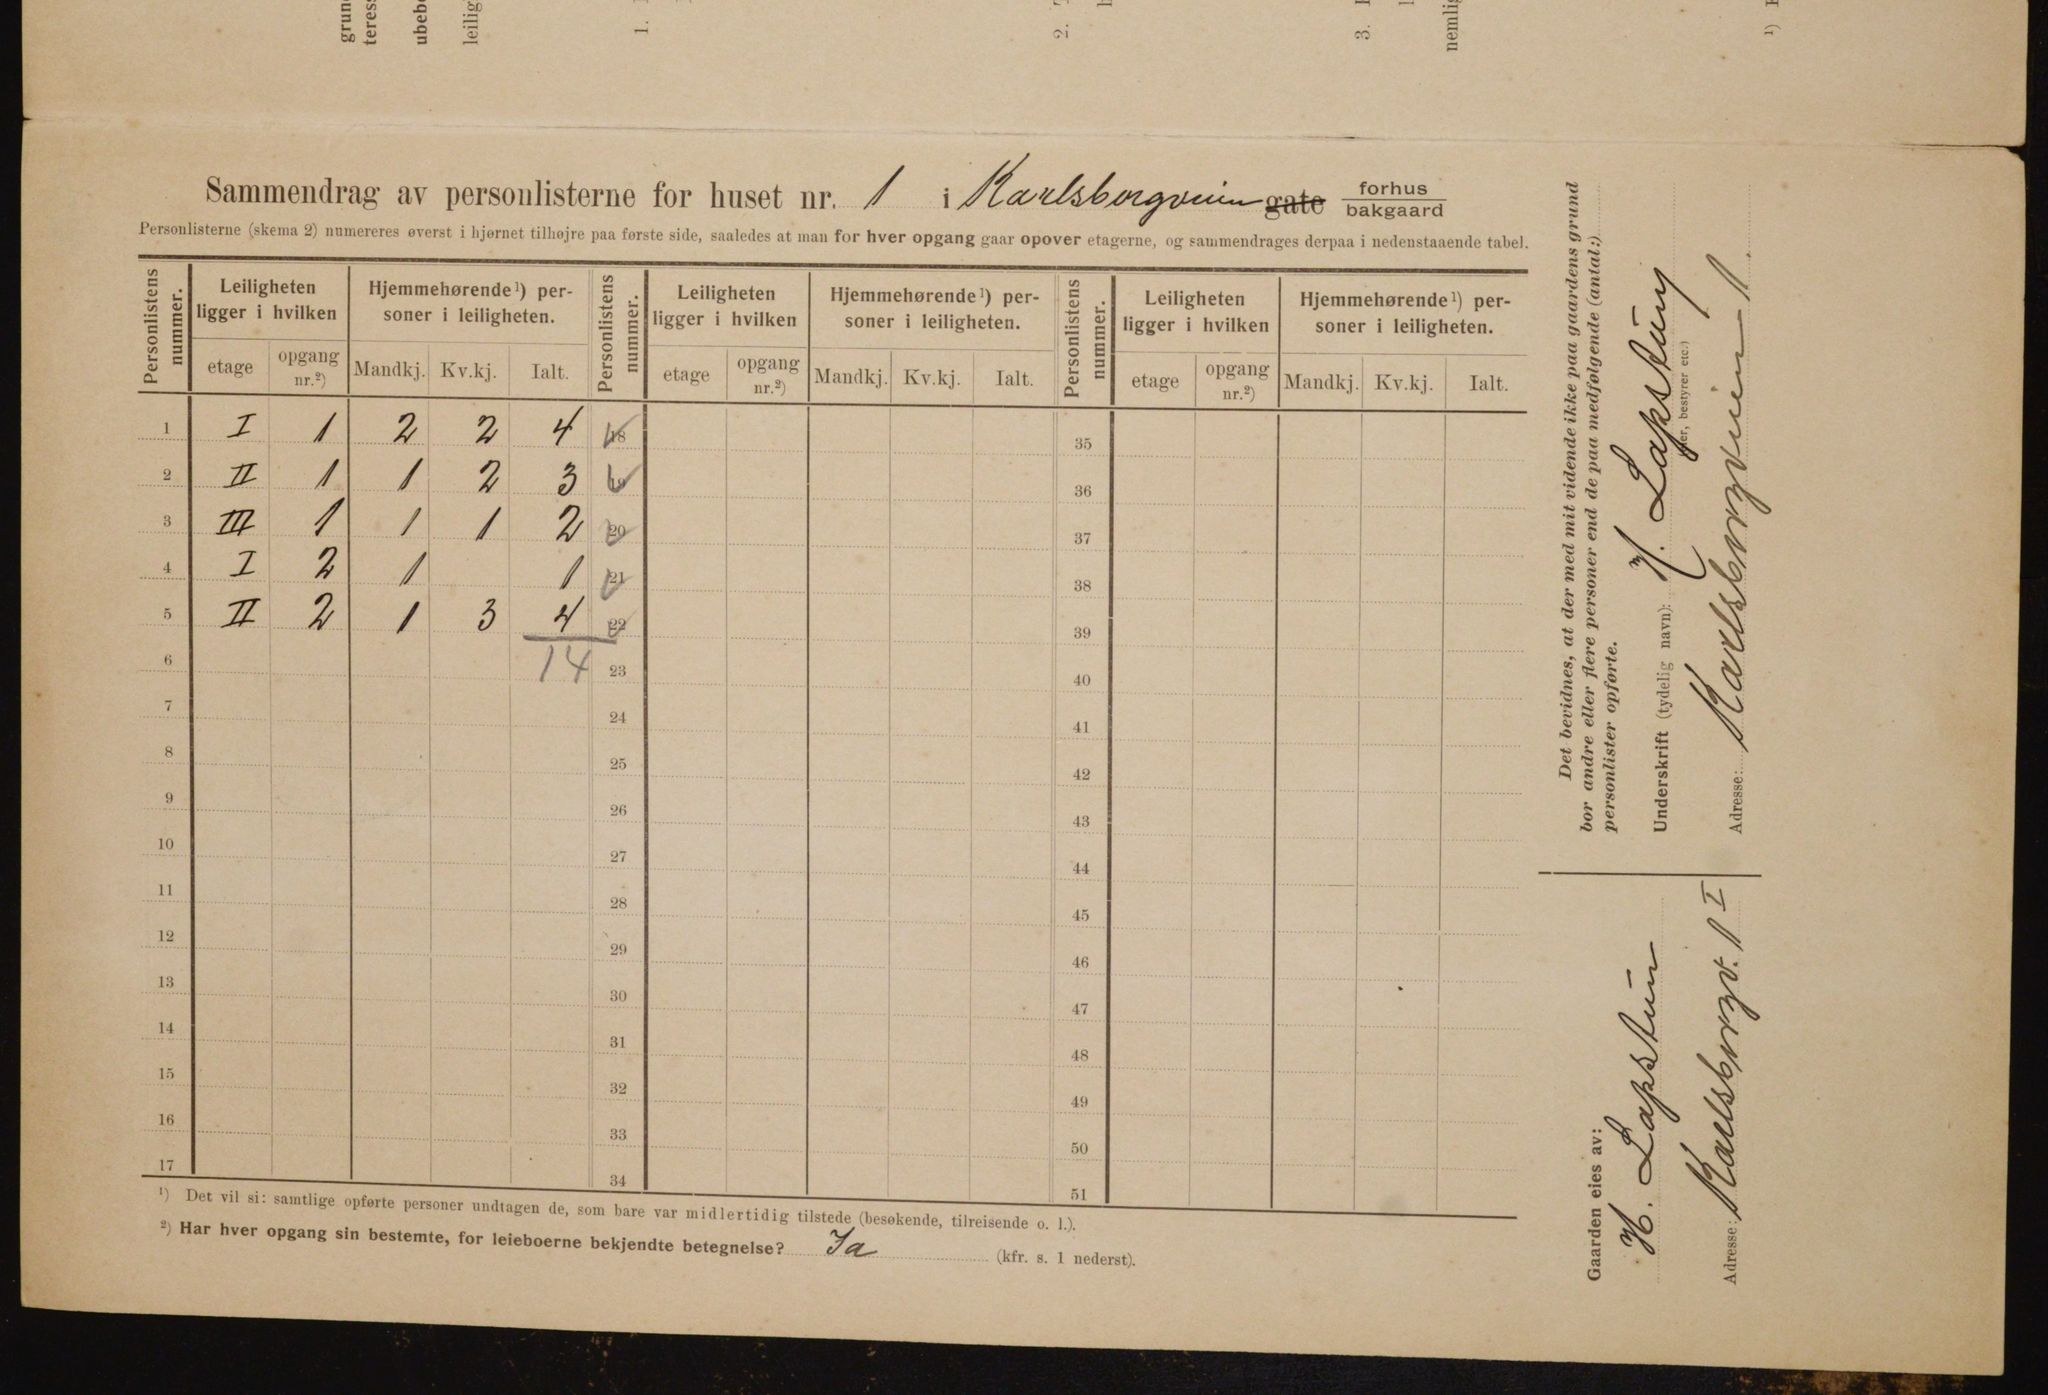 grun
teress
ubebo
leilig
1.
2.
3.
nemlig
¹)
Sammendrag av personlisterne for huset nr. 1 i Karlsborgveien gate forhus bakgaard
Personlisterne (skema 2) numereres øverst i hjørnet tilhøjre paa første side, saaledes at man for hver opgang gaar opover etagerne, og sammendrages derpaa i nedenstaaende tabel.
Personlistens nummer. Leiligheten ligger i hvilken Hjemmehørende¹) personer i leiligheten. Personlistens nummer. Leiligheten ligger i hvilken Hjemmehørende¹) personer i leiligheten. Personlistens nummer. Leiligheten ligger i hvilken Hjemmehørende¹) personer i leiligheten.
etage opgang nr.²) Mandkj. Kv.kj. Ialt. etage opgang nr.²) Mandkj. Kv.kj. Ialt. etage opgang nr.²) Mandkj. Kv.kj. Ialt.
1 I 1 2 2 4 18 35
2 II 1 1 2 3 19 36
3 III 1 1 1 2 20 37
4 I 2 1 1 21 38
5 II 2 1 3 4 22 39
6 14 23 40
7 24 41
8 25 42
9 26 43
10 27 44
11 28 45
12 29 46
13 30 47
14 31 48
15 32 49
16 33 50
17 34 51
¹) Det vil si: samtlige opførte personer undtagen de, som bare var midlertidig tilstede (besøkende, tilreisende o. l.).
²) Har hver opgang sin bestemte, for leieboerne bekjendte betegnelse? Ja (kfr. s. 1 nederst).
Det bevidnes, at der med mit vidende ikke paa gaardens grund
bor andre eller flere personer end de paa medfølgende (antal:)
personlister opførte.
Underskrift (tydelig navn): H. Lapstung
er, bestyrer etc.)
Adresse: Karlsborgveien 1
Gaarden eies av:
H. Lapstun
Adresse: Karlsborgv. 1 I